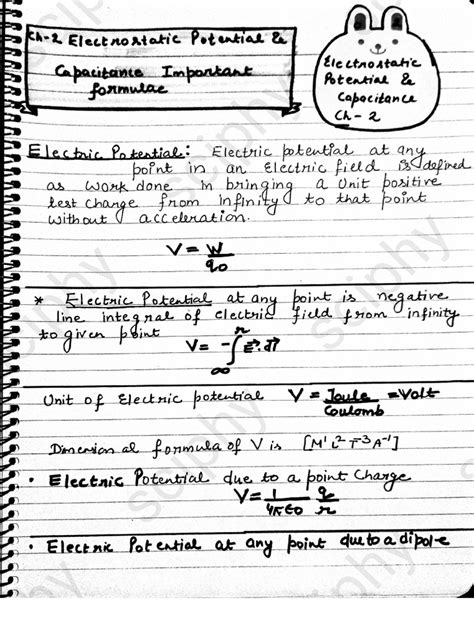 Ch-2 Electrostatic Potential &
Capacitance Important
formulae
Electrostatic
Potential &
Capacitance
Ch - 2
Electric Potential: Electric potential at any
point in an Electric field is defined
as work done in bringing a unit positive
test charge from infinity to that point
without acceleration.
V = W/q0
* Electric Potential at any point is negative
line integral of electric field from infinity
to given point
V = -∫∞^r E⃗.dl⃗
Unit of Electric potential V = Joule/Coulomb = Volt
Dimensional formula of V is [M¹L²T⁻³A⁻¹]
• Electric Potential due to a point Charge
V = 1/4πε0 q/r
• Electric Potential at any point due to a dipole
sciphy
sciphy
sciphy
sciphy
sciphy
sciphy